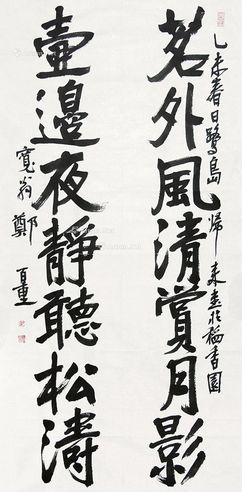 茗外風清賞月影
乙未春日鷺島歸來書於稻香園
壺邊夜靜聽松濤
寬翁鄭百重